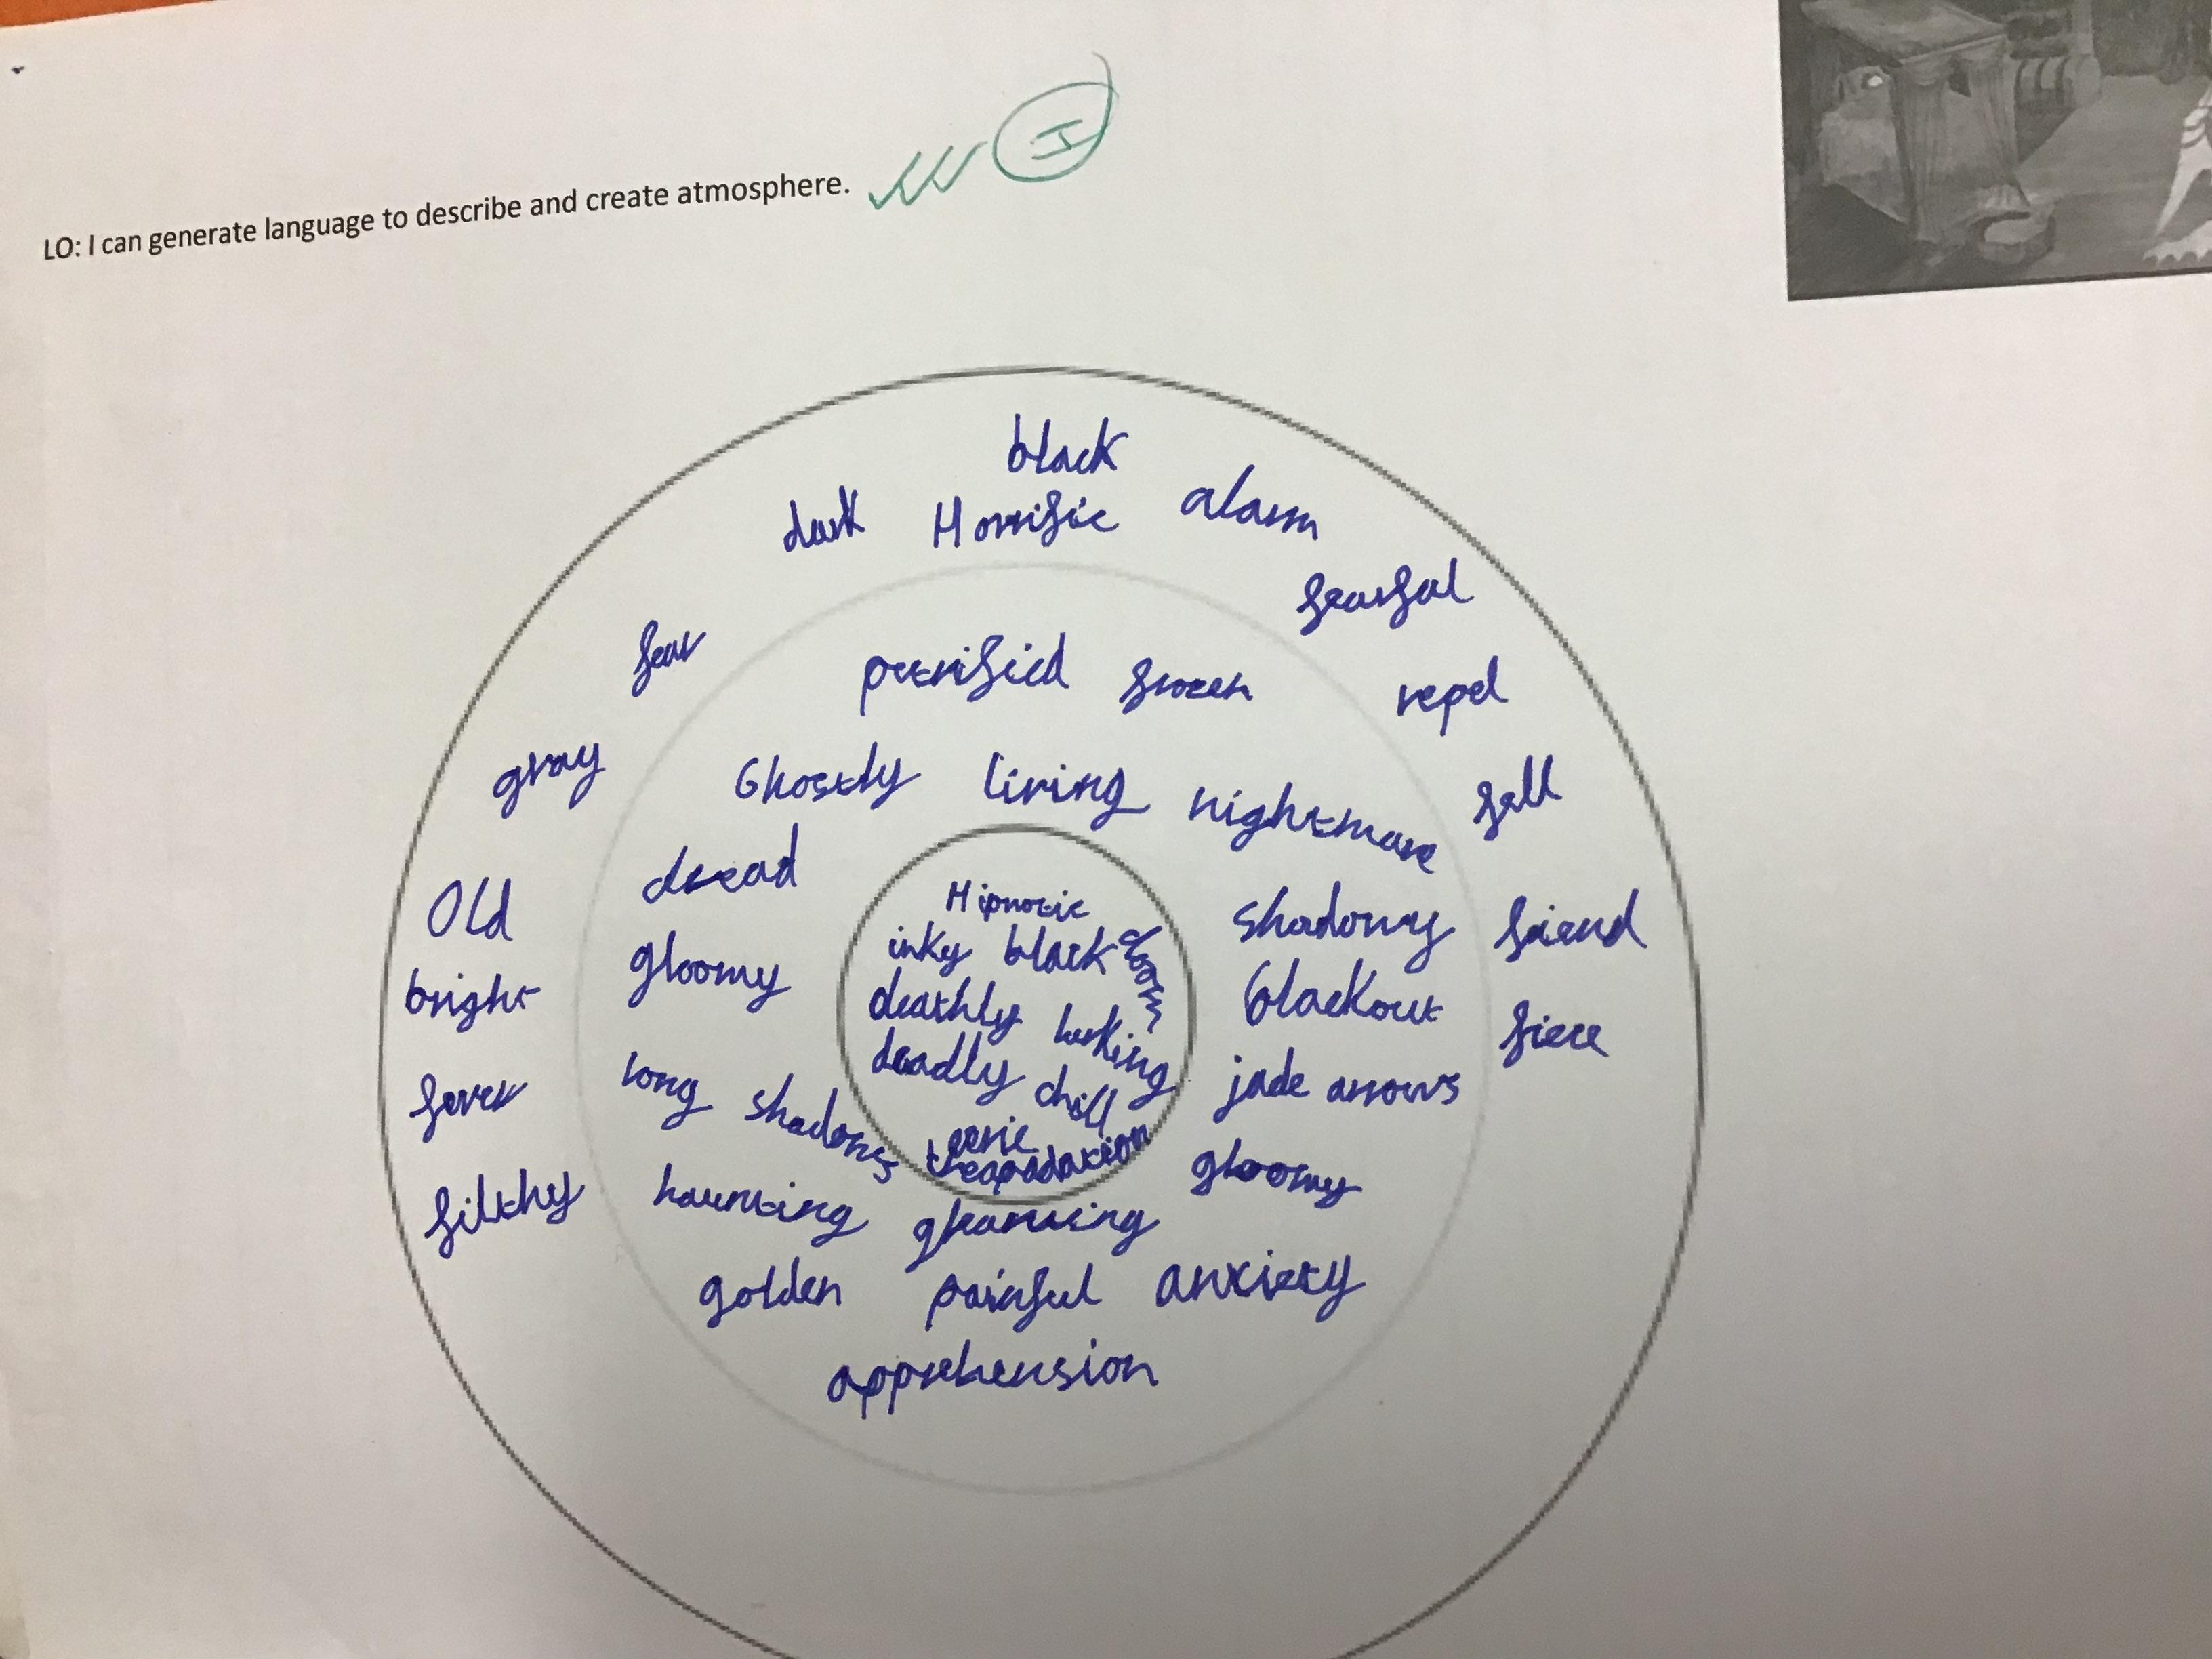 LO: I can generate language to describe and create atmosphere.
I
black
dark Horrific alarm
fearful
fear
petrified frozen repel
gray
Ghostly living nightmare fell
dread
Old
Hipnotic
shadowy
inky black doom
gloomy
bright
deathly lurking
blackout
deadly chill
jade arrows
fever
long shadows
eerie
gloomy
filthy
haunting
golden painful anxiety
apprehension